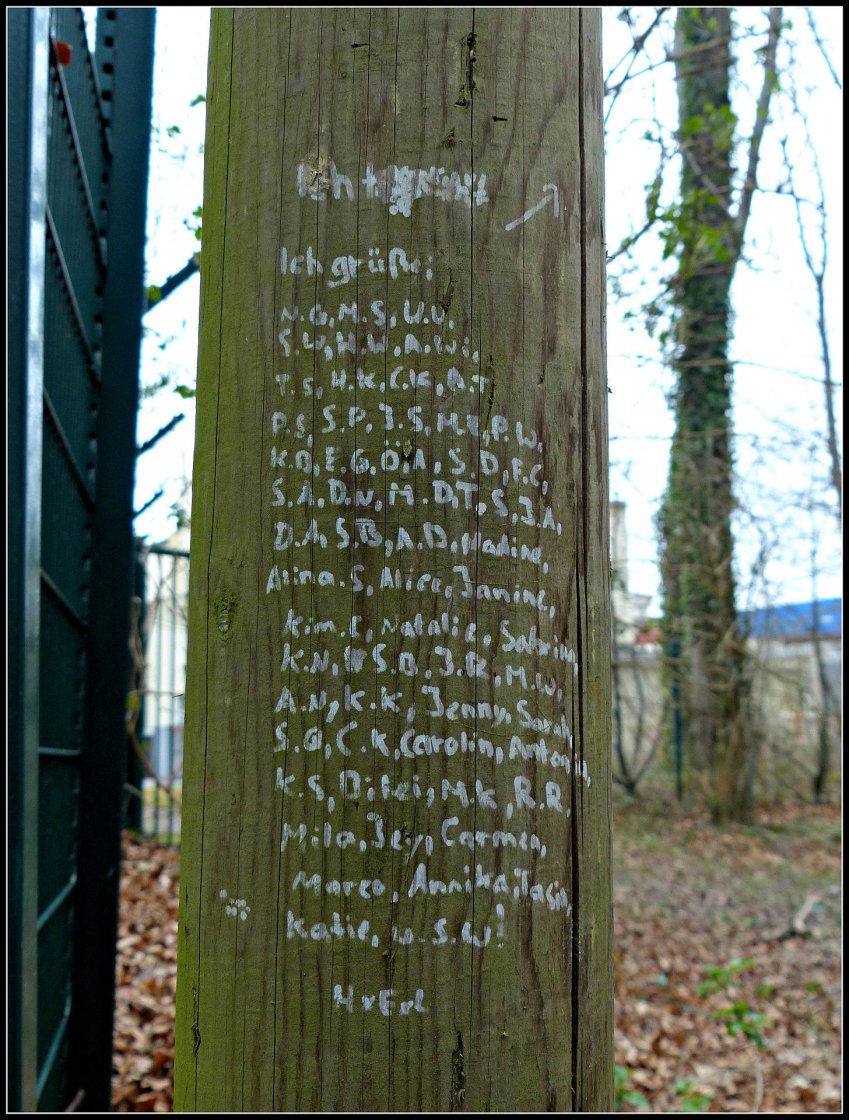 Ich
Ich grüße:
N.G, M.S, U.U,
S.W, H.W, A.Wi,
T.S, H.K, C.K, A.T
P.S, S.P, J.S, M.E, P.W,
K.D, E.G, Ö.A, S.D, F.C,
S.A, D.N, M.D, T.S, J.A,
D.A, S.B, A.D, Nadine,
Alina.S, Alice, Janine,
Kim.C, Natalie, Sabrina,
K.N, S.B, J.R, M.W,
A.N, K.K, Jenny, Sarah,
S.G, C.K, Carolin, Antonia,
K.S, M.K, R.R,
Mila, Carmen,
Marco, Annika,
Katie, u.s.w!